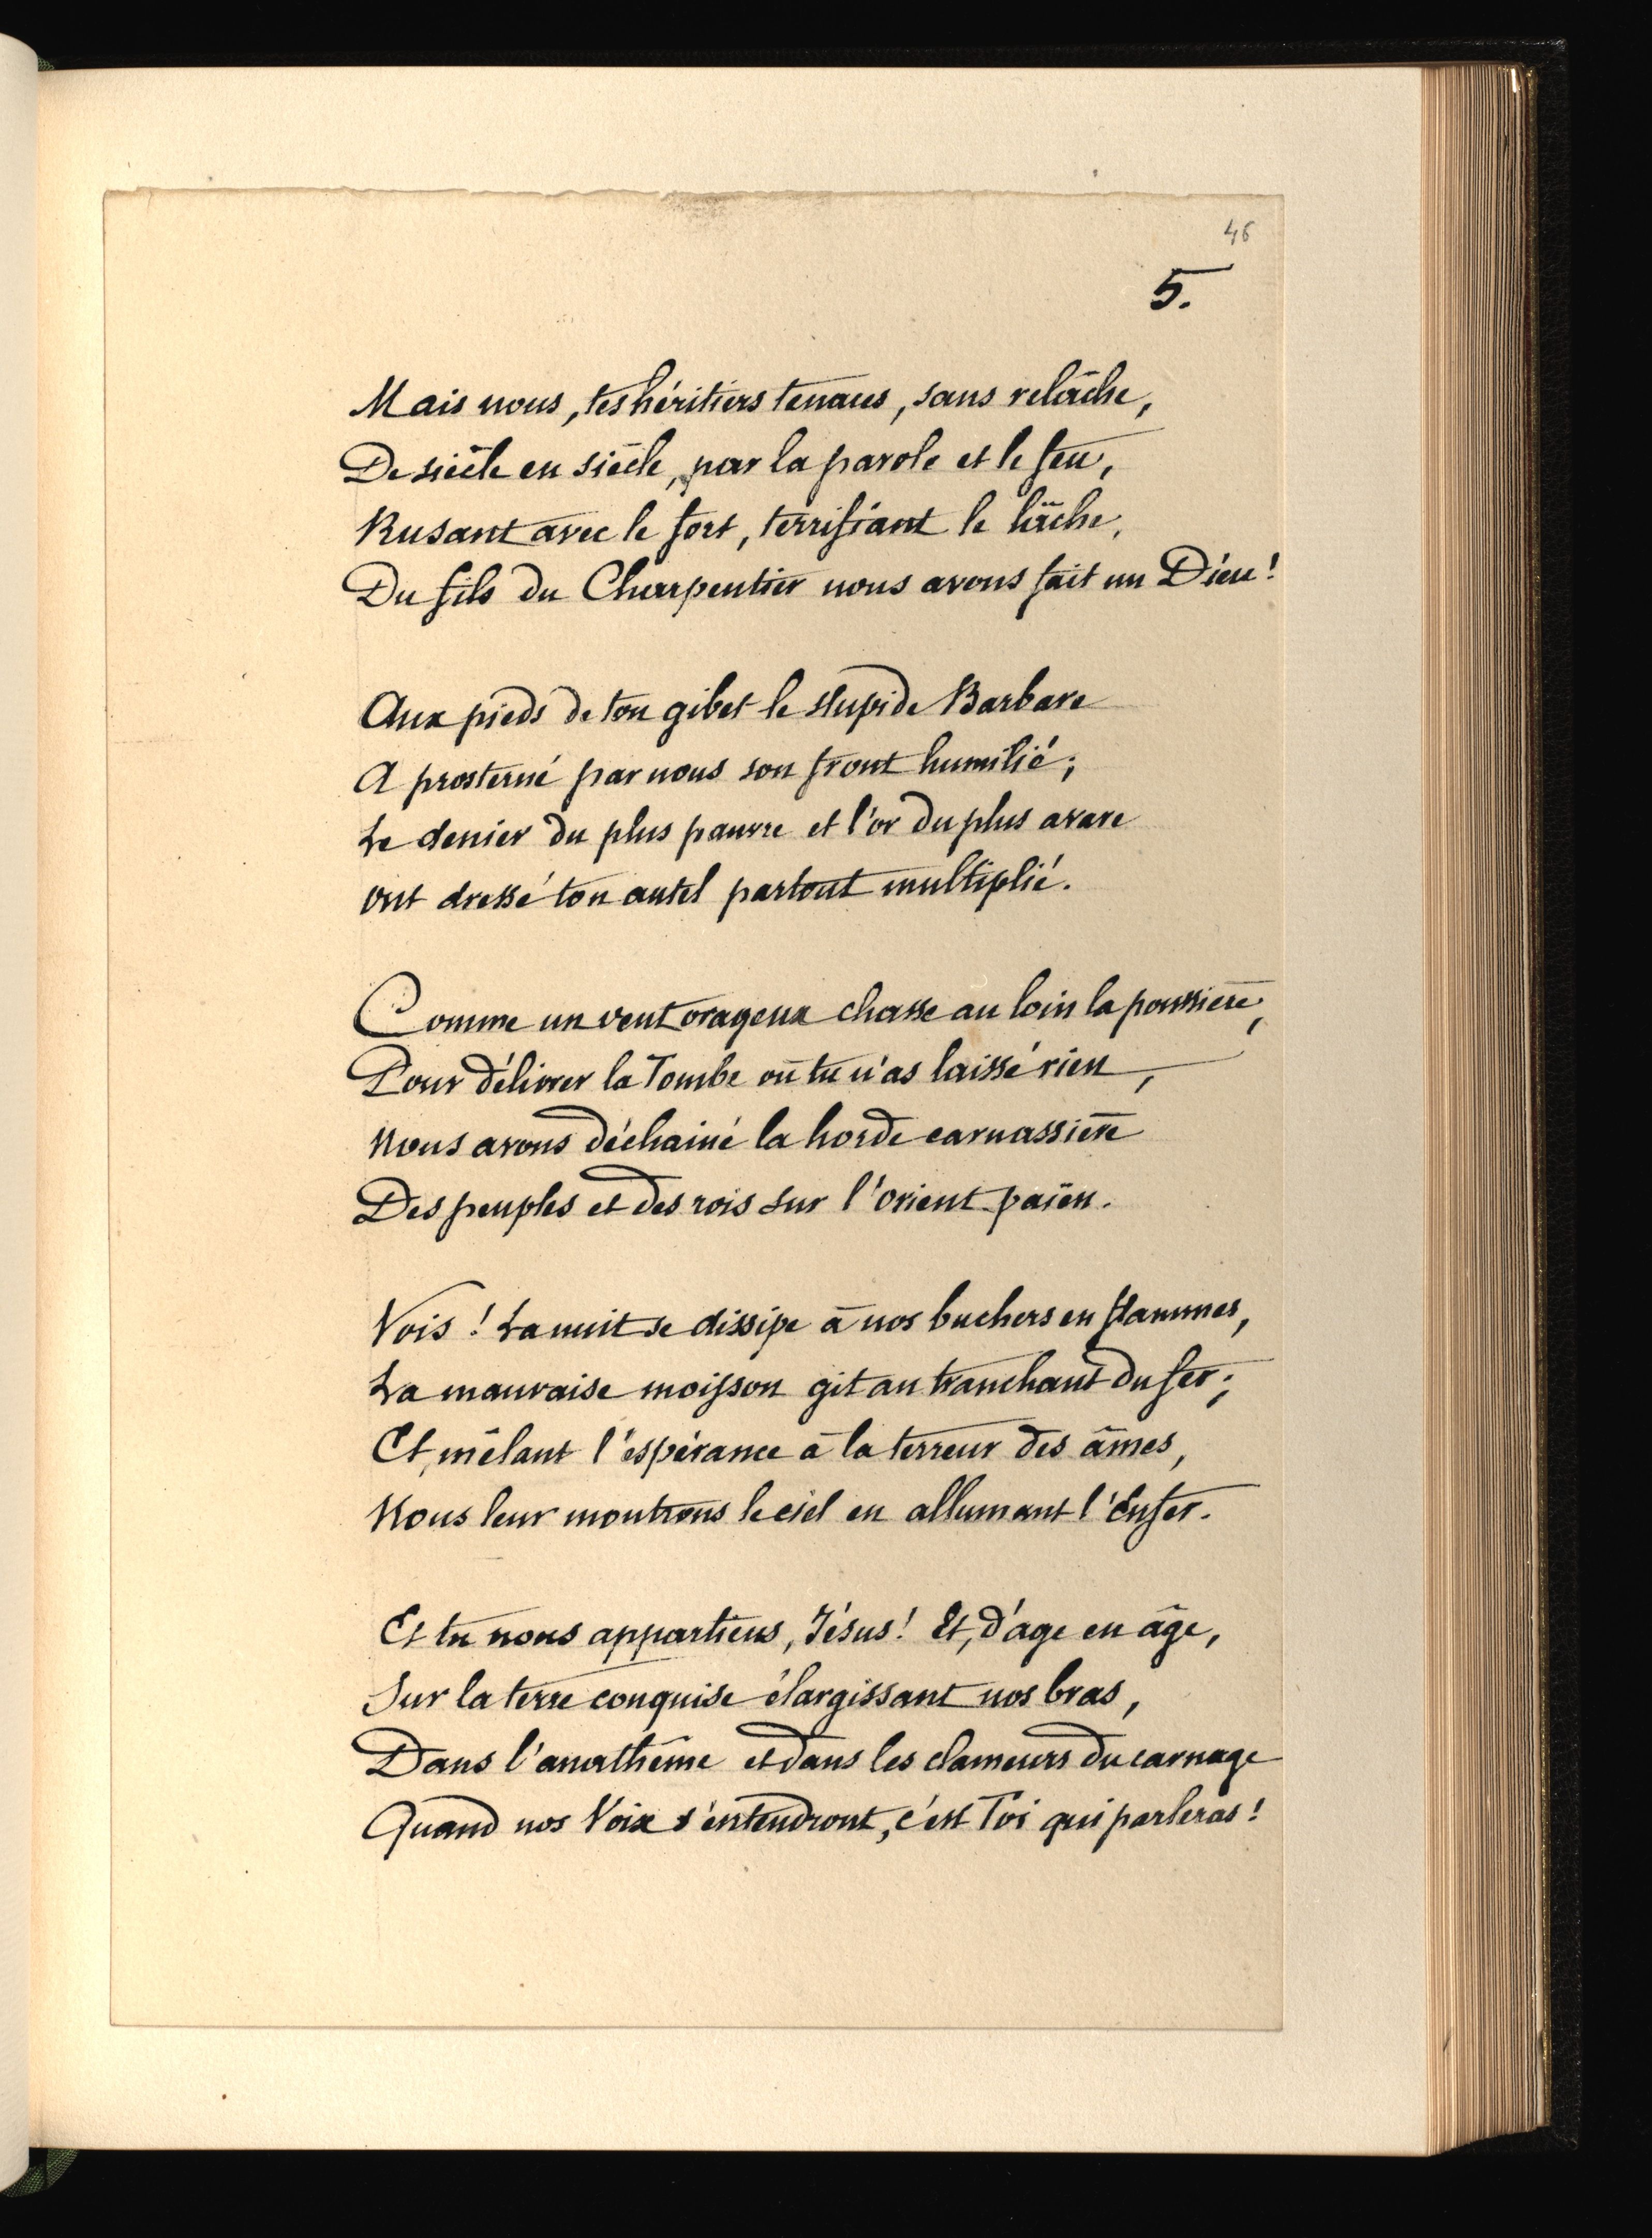 46
5.
Mais nous, tes héritiers tenaces, sans relâche,
De siècle en siècle, par la parole et le feu,
Rusant avec le fort, terrifiant le lâche,
Du fils du Charpentier nous avons fait un Dieu!
Aux pieds de ton gibet le stupide Barbare
A prosterné par nous son front humilié;
Le denier du plus pauvre et l'or du plus avare
Ont dressé ton autel partout multiplié.
Comme un vent orageux chasse au loin la poussière,
Pour délivrer la Tombe où tu n'as laissé rien,
Nous avons déchainé la horde carnassière
Des peuples et des rois sur l'Orient païen.
Vois! La nuit se dissipe à nos buchers en flammes,
La mauvaise moisson git au tranchant du fer;
Et, mêlant l'espérance à la terreur des âmes,
Nous leur montrons le ciel en allumant l'Enfer.
Et tu nous appartiens, Jésus! Et, d'age en âge,
Sur la terre conquise élargissant nos bras,
Dans l'anathème et dans les clameurs du carnage
Quand nos Voix s'entendront, c'est Toi qui parleras!